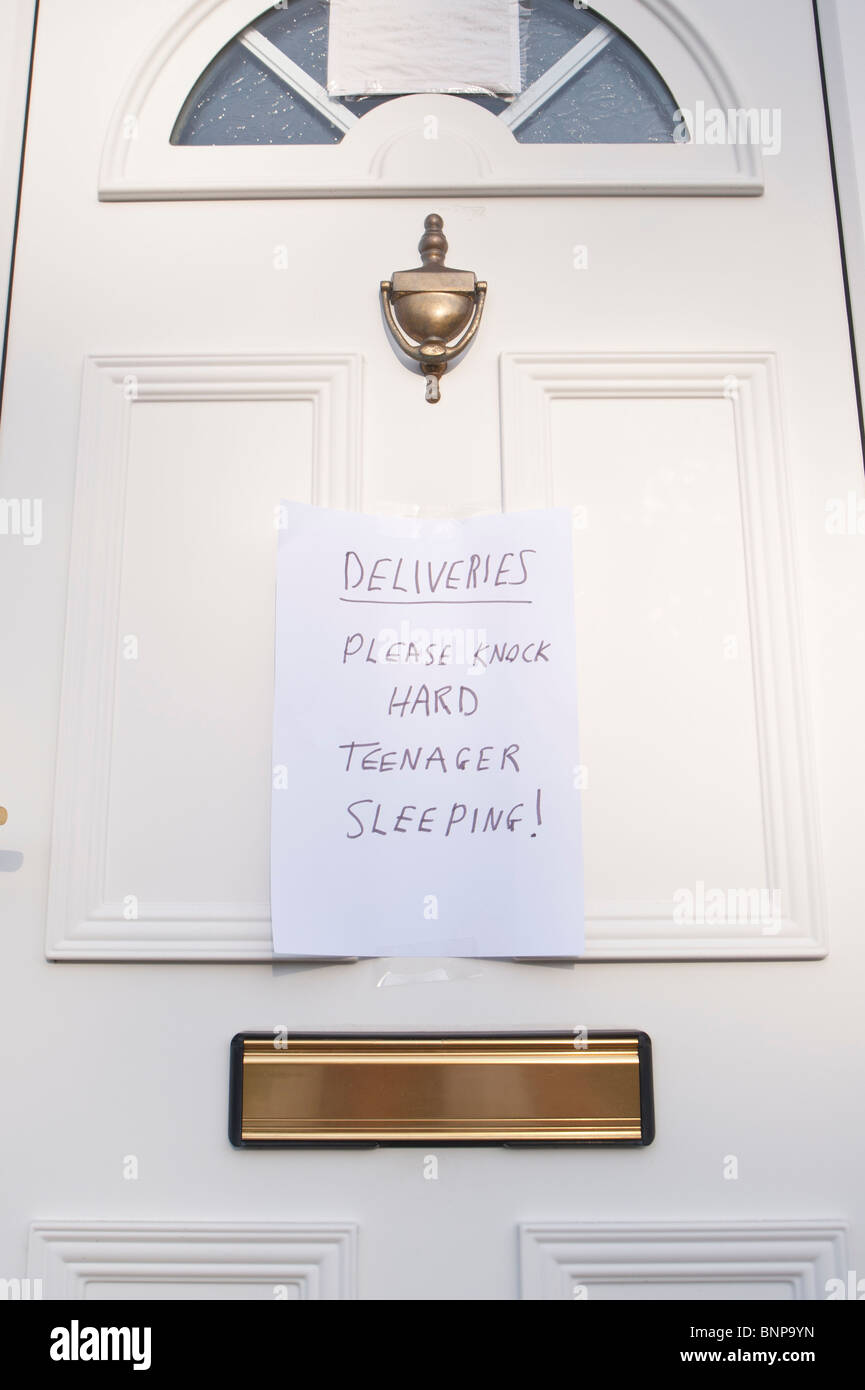 DELIVERIES
PLEASE KNOCK
HARD
TEENAGER
SLEEPING!
alamy
alamy
alamy
Image ID: BNP9YN
www.alamy.com